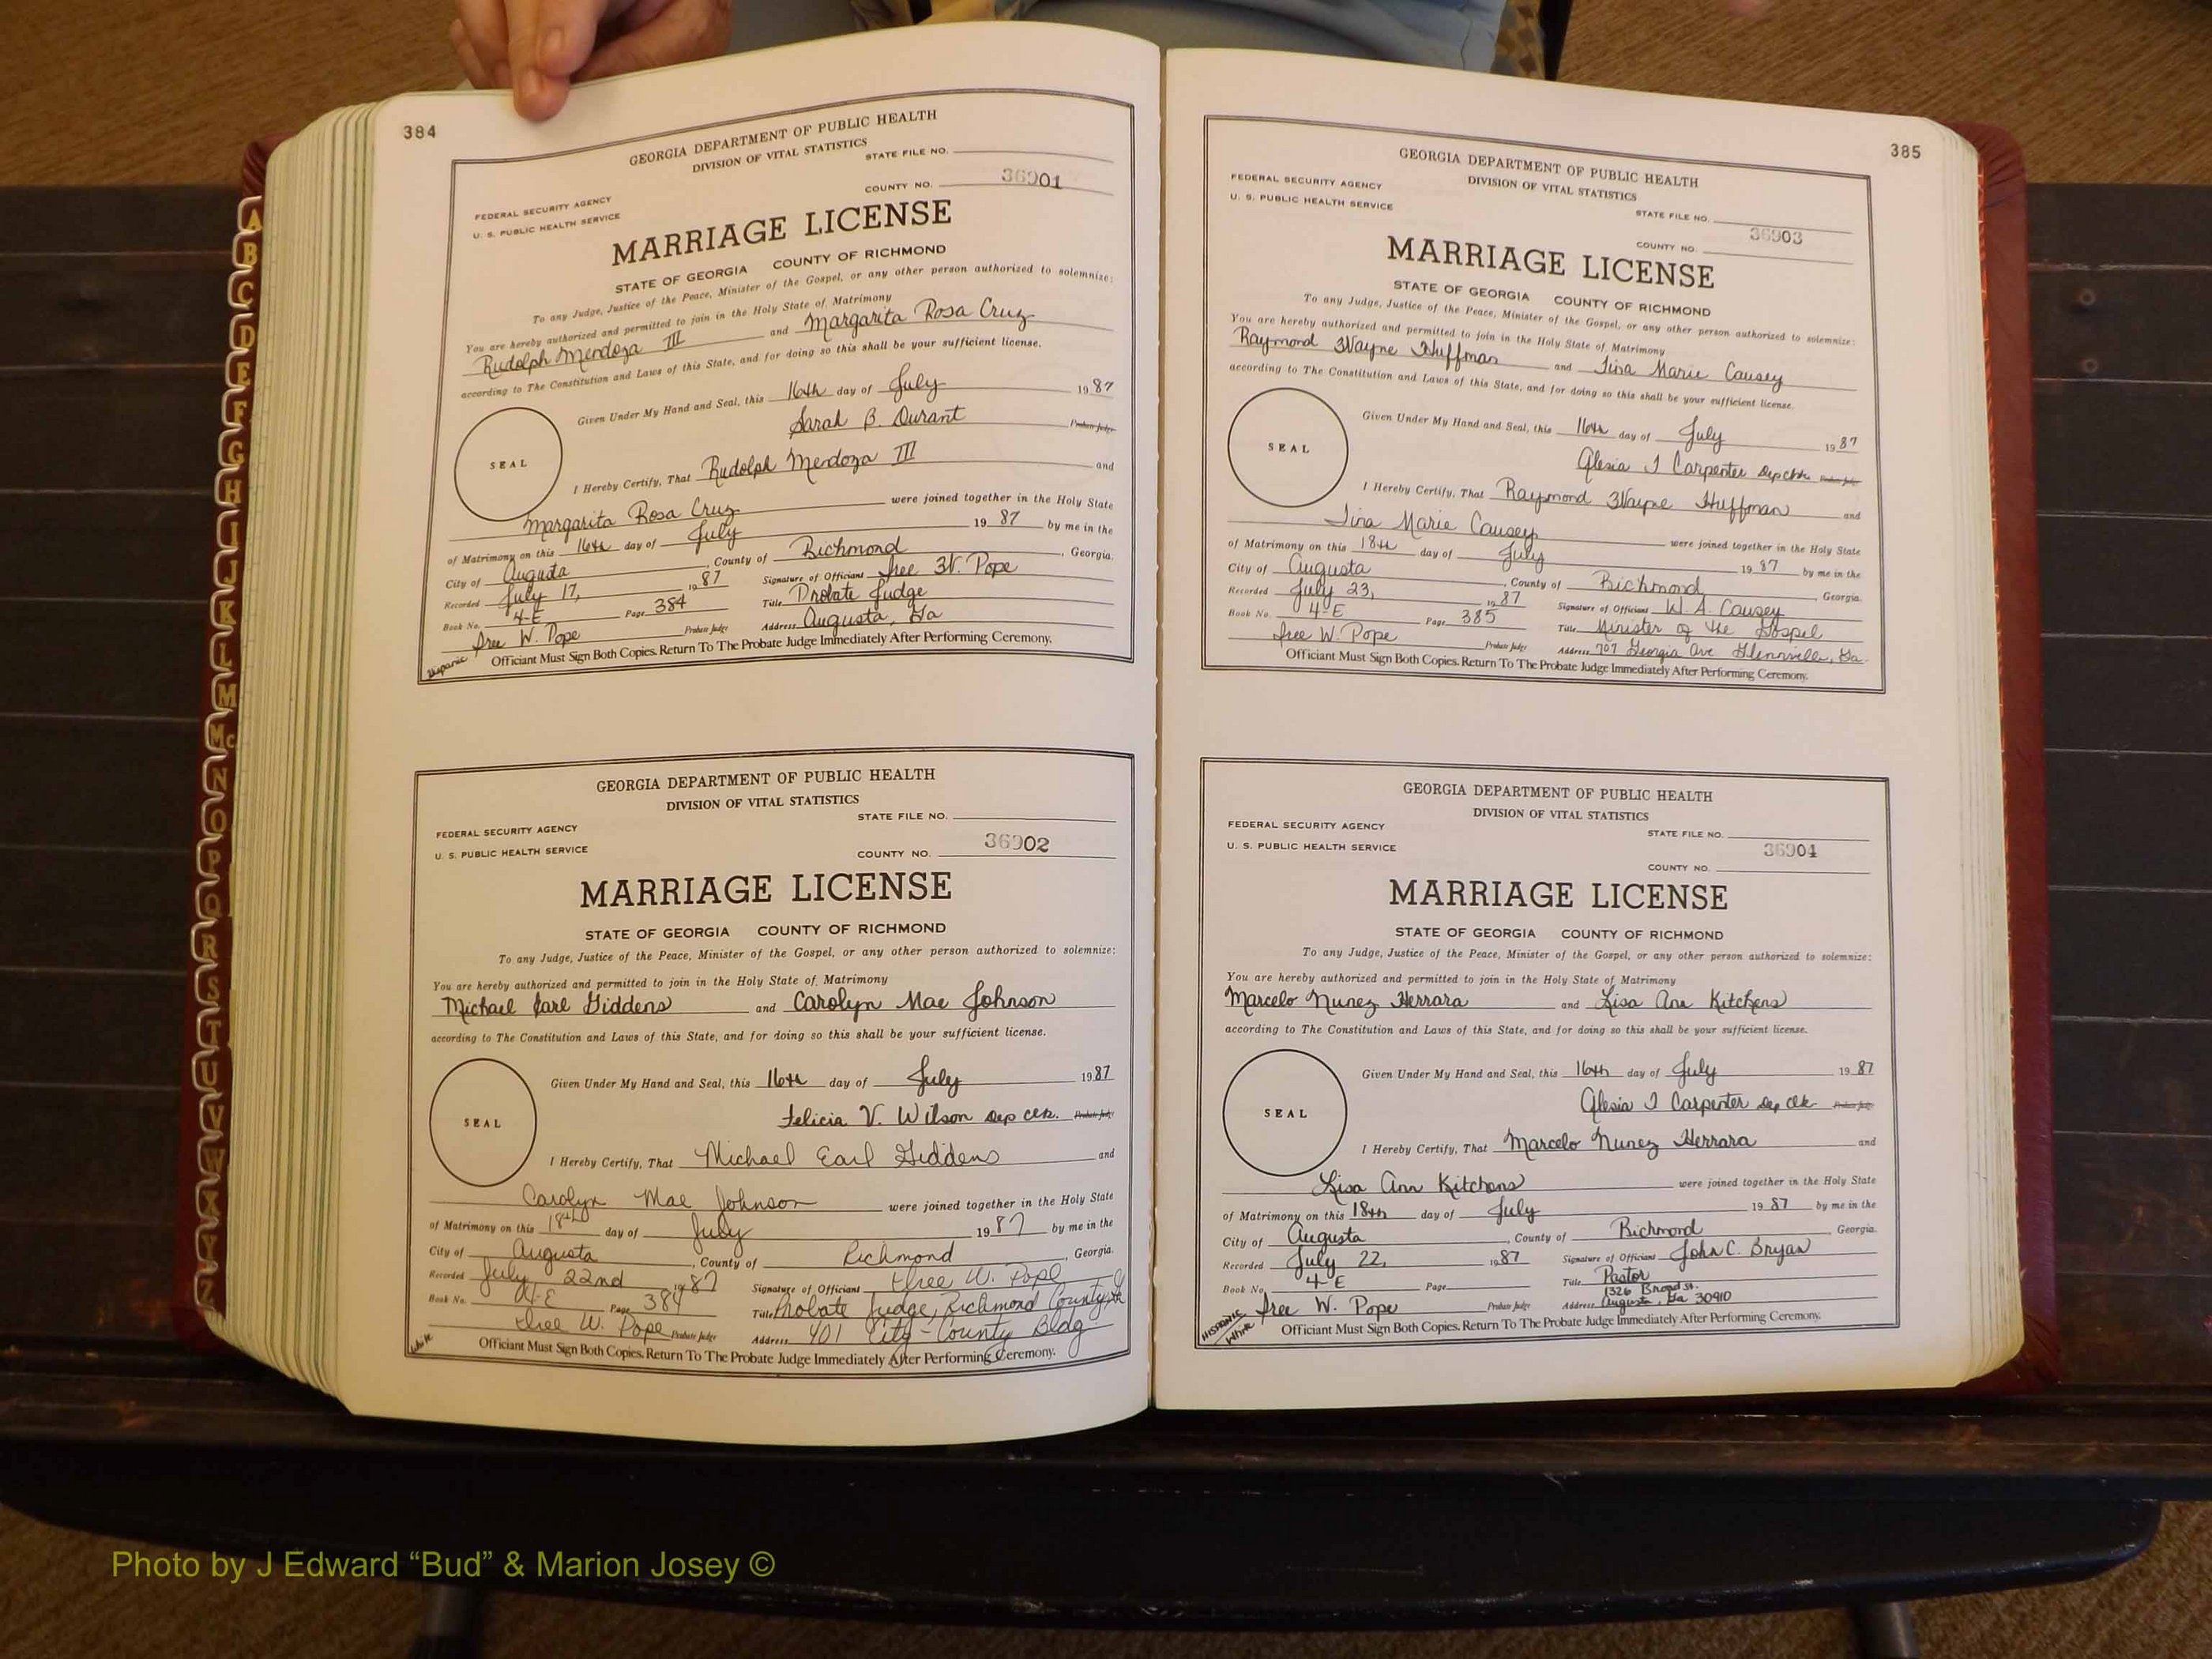 384
GEORGIA DEPARTMENT OF PUBLIC HEALTH
DIVISION OF VITAL STATISTICS
STATE FILE NO.
COUNTY NO. 36901
FEDERAL SECURITY AGENCY
U. S. PUBLIC HEALTH SERVICE
MARRIAGE LICENSE
STATE OF GEORGIA COUNTY OF RICHMOND
To any Judge, Justice of the Peace, Minister of the Gospel, or any other person authorized to solemnize:
You are hereby authorized and permitted to join in the Holy State of Matrimony
Rudolph Mendoza III and Margarita Rosa Cruz
according to The Constitution and Laws of this State, and for doing so this shall be your sufficient license.
Given Under My Hand and Seal, this 16th day of July 1987
Sarah B. Durant Probate Judge
SEAL
I Hereby Certify, That Rudolph Mendoza III and
Margarita Rosa Cruz were joined together in the Holy State
of Matrimony on this 16th day of July 1987 by me in the
City of Augusta, County of Richmond, Georgia.
Recorded July 17, 1987 Signature of Officiant W. Pope
Book No. 4-E Page 384 Title Probate Judge
W. Pope Probate Judge Address Augusta, Ga
Hispanic
Officiant Must Sign Both Copies. Return To The Probate Judge Immediately After Performing Ceremony.
GEORGIA DEPARTMENT OF PUBLIC HEALTH
DIVISION OF VITAL STATISTICS
STATE FILE NO.
FEDERAL SECURITY AGENCY
U. S. PUBLIC HEALTH SERVICE
COUNTY NO. 36902
MARRIAGE LICENSE
STATE OF GEORGIA COUNTY OF RICHMOND
To any Judge, Justice of the Peace, Minister of the Gospel, or any other person authorized to solemnize:
You are hereby authorized and permitted to join in the Holy State of Matrimony
Michael Earl Giddens and Carolyn Mae Johnson
according to The Constitution and Laws of this State, and for doing so this shall be your sufficient license.
Given Under My Hand and Seal, this 16th day of July 1987
Felicia V. Wilson Dep Clk. Probate Judge
SEAL
I Hereby Certify, That Michael Earl Giddens and
Carolyn Mae Johnson were joined together in the Holy State
of Matrimony on this 18th day of July 1987 by me in the
City of Augusta, County of Richmond, Georgia.
Recorded July 22nd 1987 Signature of Officiant W. Pope
Book No. 4-E Page 384 Title Probate Judge, Richmond County, Ga
W. Pope Probate Judge Address 401 City-County Bldg
White
Officiant Must Sign Both Copies. Return To The Probate Judge Immediately After Performing Ceremony.
385
GEORGIA DEPARTMENT OF PUBLIC HEALTH
DIVISION OF VITAL STATISTICS
FEDERAL SECURITY AGENCY
U. S. PUBLIC HEALTH SERVICE
STATE FILE NO.
36903
COUNTY NO.
MARRIAGE LICENSE
STATE OF GEORGIA COUNTY OF RICHMOND
To any Judge, Justice of the Peace, Minister of the Gospel, or any other person authorized to solemnize:
You are hereby authorized and permitted to join in the Holy State of Matrimony
Raymond Wayne Huffman and Tina Marie Causey
according to The Constitution and Laws of this State, and for doing so this shall be your sufficient license.
Given Under My Hand and Seal, this 16th day of July 1987
Glesia J Carpenter Dep Clk. Probate Judge
SEAL
I Hereby Certify, That Raymond Wayne Huffman and
Tina Marie Causey were joined together in the Holy State
of Matrimony on this 18th day of July 1987 by me in the
City of Augusta, County of Richmond, Georgia.
Recorded July 23, 1987 Signature of Officiant W. A. Causey
Book No. 4-E Page 385 Title Minister of the Gospel
W. Pope Probate Judge Address 707 Georgia Ave Glennville, Ga.
Officiant Must Sign Both Copies. Return To The Probate Judge Immediately After Performing Ceremony.
GEORGIA DEPARTMENT OF PUBLIC HEALTH
DIVISION OF VITAL STATISTICS
FEDERAL SECURITY AGENCY
U. S. PUBLIC HEALTH SERVICE
STATE FILE NO.
36904
COUNTY NO.
MARRIAGE LICENSE
STATE OF GEORGIA COUNTY OF RICHMOND
To any Judge, Justice of the Peace, Minister of the Gospel, or any other person authorized to solemnize:
You are hereby authorized and permitted to join in the Holy State of Matrimony
Marcelo Nunez Herrara and Lisa Ann Kitchens
according to The Constitution and Laws of this State, and for doing so this shall be your sufficient license.
Given Under My Hand and Seal, this 16th day of July 1987
Glesia J Carpenter Dep Clk Probate Judge
SEAL
I Hereby Certify, That Marcelo Nunez Herrara and
Lisa Ann Kitchens were joined together in the Holy State
of Matrimony on this 18th day of July 1987 by me in the
City of Augusta, County of Richmond Georgia.
Recorded July 22, 1987 Signature of Officiant John C. Bryan
Book No. 4-E Page Title Pastor
1326 Broad St.
W. Pope Probate Judge Address Augusta, Ga 30910
HISPANIC
White
Officiant Must Sign Both Copies. Return To The Probate Judge Immediately After Performing Ceremony.
A
B
C
D
E
F
G
H
I
J
K
L
M
Mc
N
O
P
Q
R
S
T
U
V
W
X
Y
Z
Photo by J Edward “Bud” & Marion Josey ©